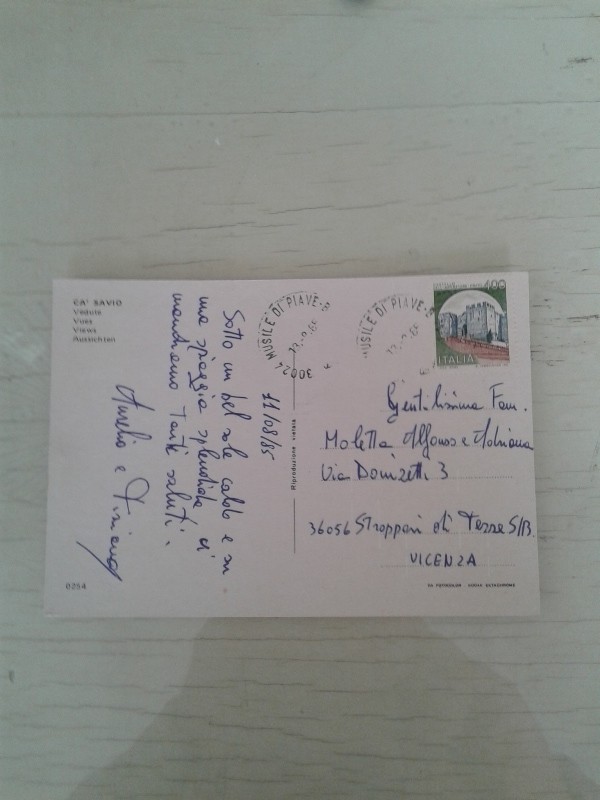 CA' SAVIO
Vedute
Vues
Views
Aussichten
11/08/85
Sotto un bel sole caldo e su
una spiaggia splendida vi
mandiamo tanti saluti.
Aurelia e Tiziano
0254
Riproduzione vietata
30024 MUSILE DI PIAVE-B
MUSILE DI PIAVE-B
400
ITALIA
Gentilissima Fam.
Moletta Alfonso e Adriana
Via Donizetti 3
36056 Stroppari di Tezze S/B.
VICENZA